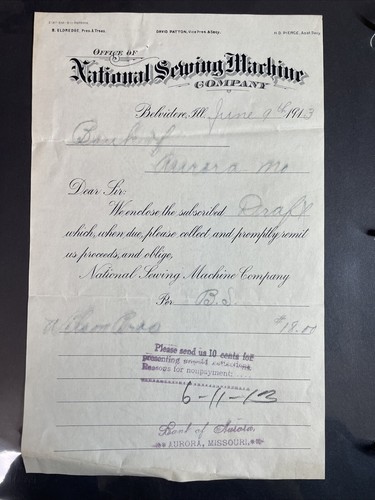 B. ELDREDGE, Pres. & Treas.
DAVID PATTON, Vice Pres. & Secy.
H.D. PIERCE, Asst. Treas.
OFFICE OF
National Sewing Machine
COMPANY
Belvidere, Ill. June 9th 1913
Bank of
Aurora Mo
Dear Sir:
We enclose the subscribed Draft
which, when due, please collect and promptly remit
us proceeds, and oblige,
National Sewing Machine Company
Per B.S.
Wilson Bros $18.00
Please send us 10 cents for
presenting unpaid collections.
Reasons for nonpayment:
6-11-13
Bank of Aurora.
AURORA, MISSOURI.